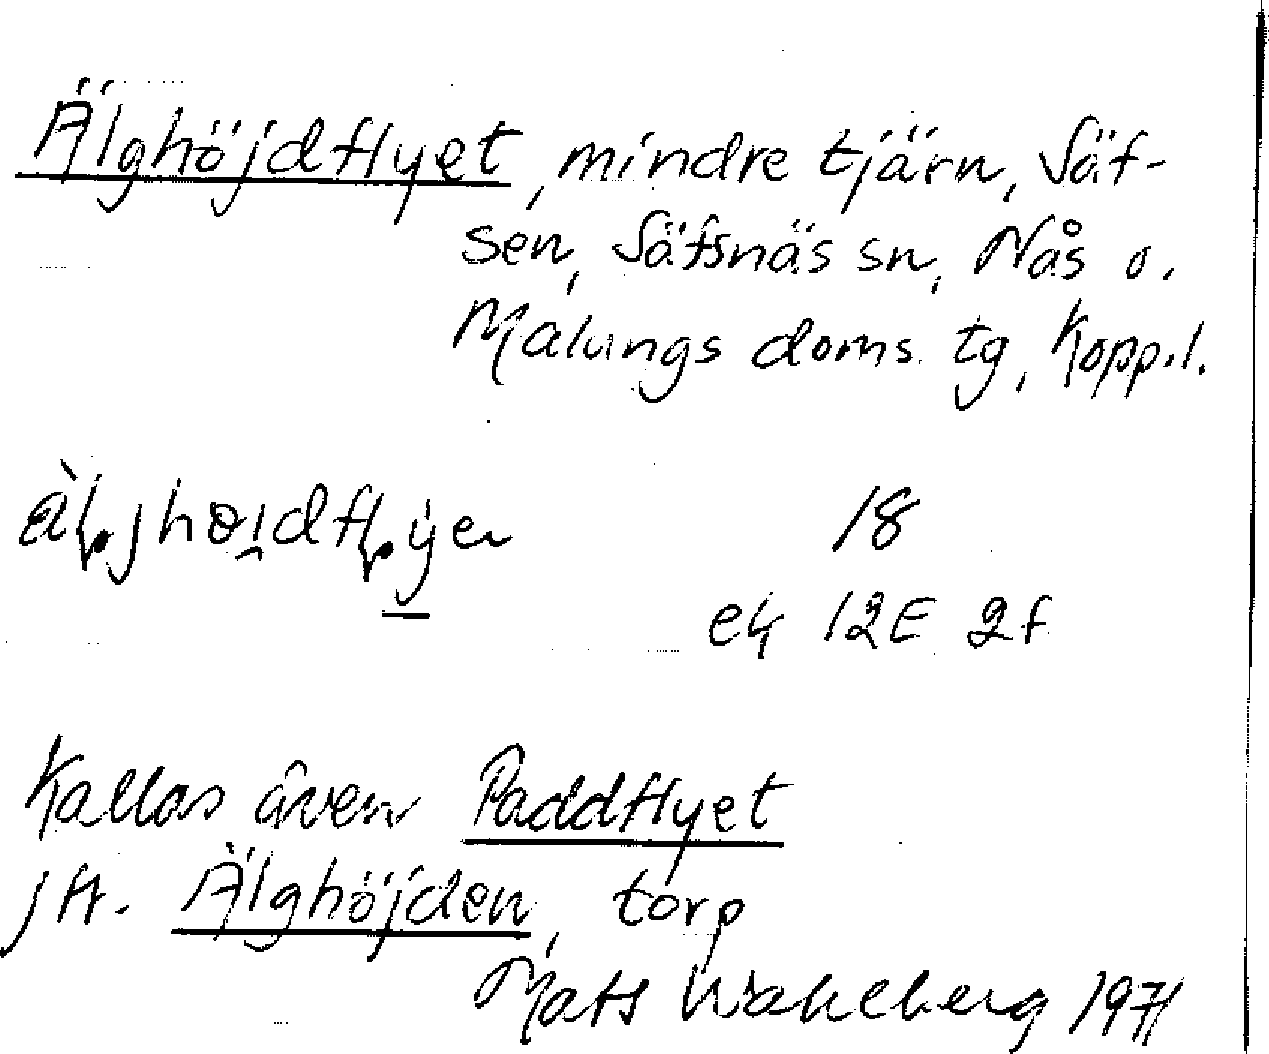 Älghöjdflyet, mindre tjärn, Säf-
sen, Säfsnäs sn, Nås o.
Malungs doms. tg, Kopp.l.
18
ek 12E 2f
Kallas även Paddflyet
jfr. Älghöjden, torp
Mats Wahlberg 1971